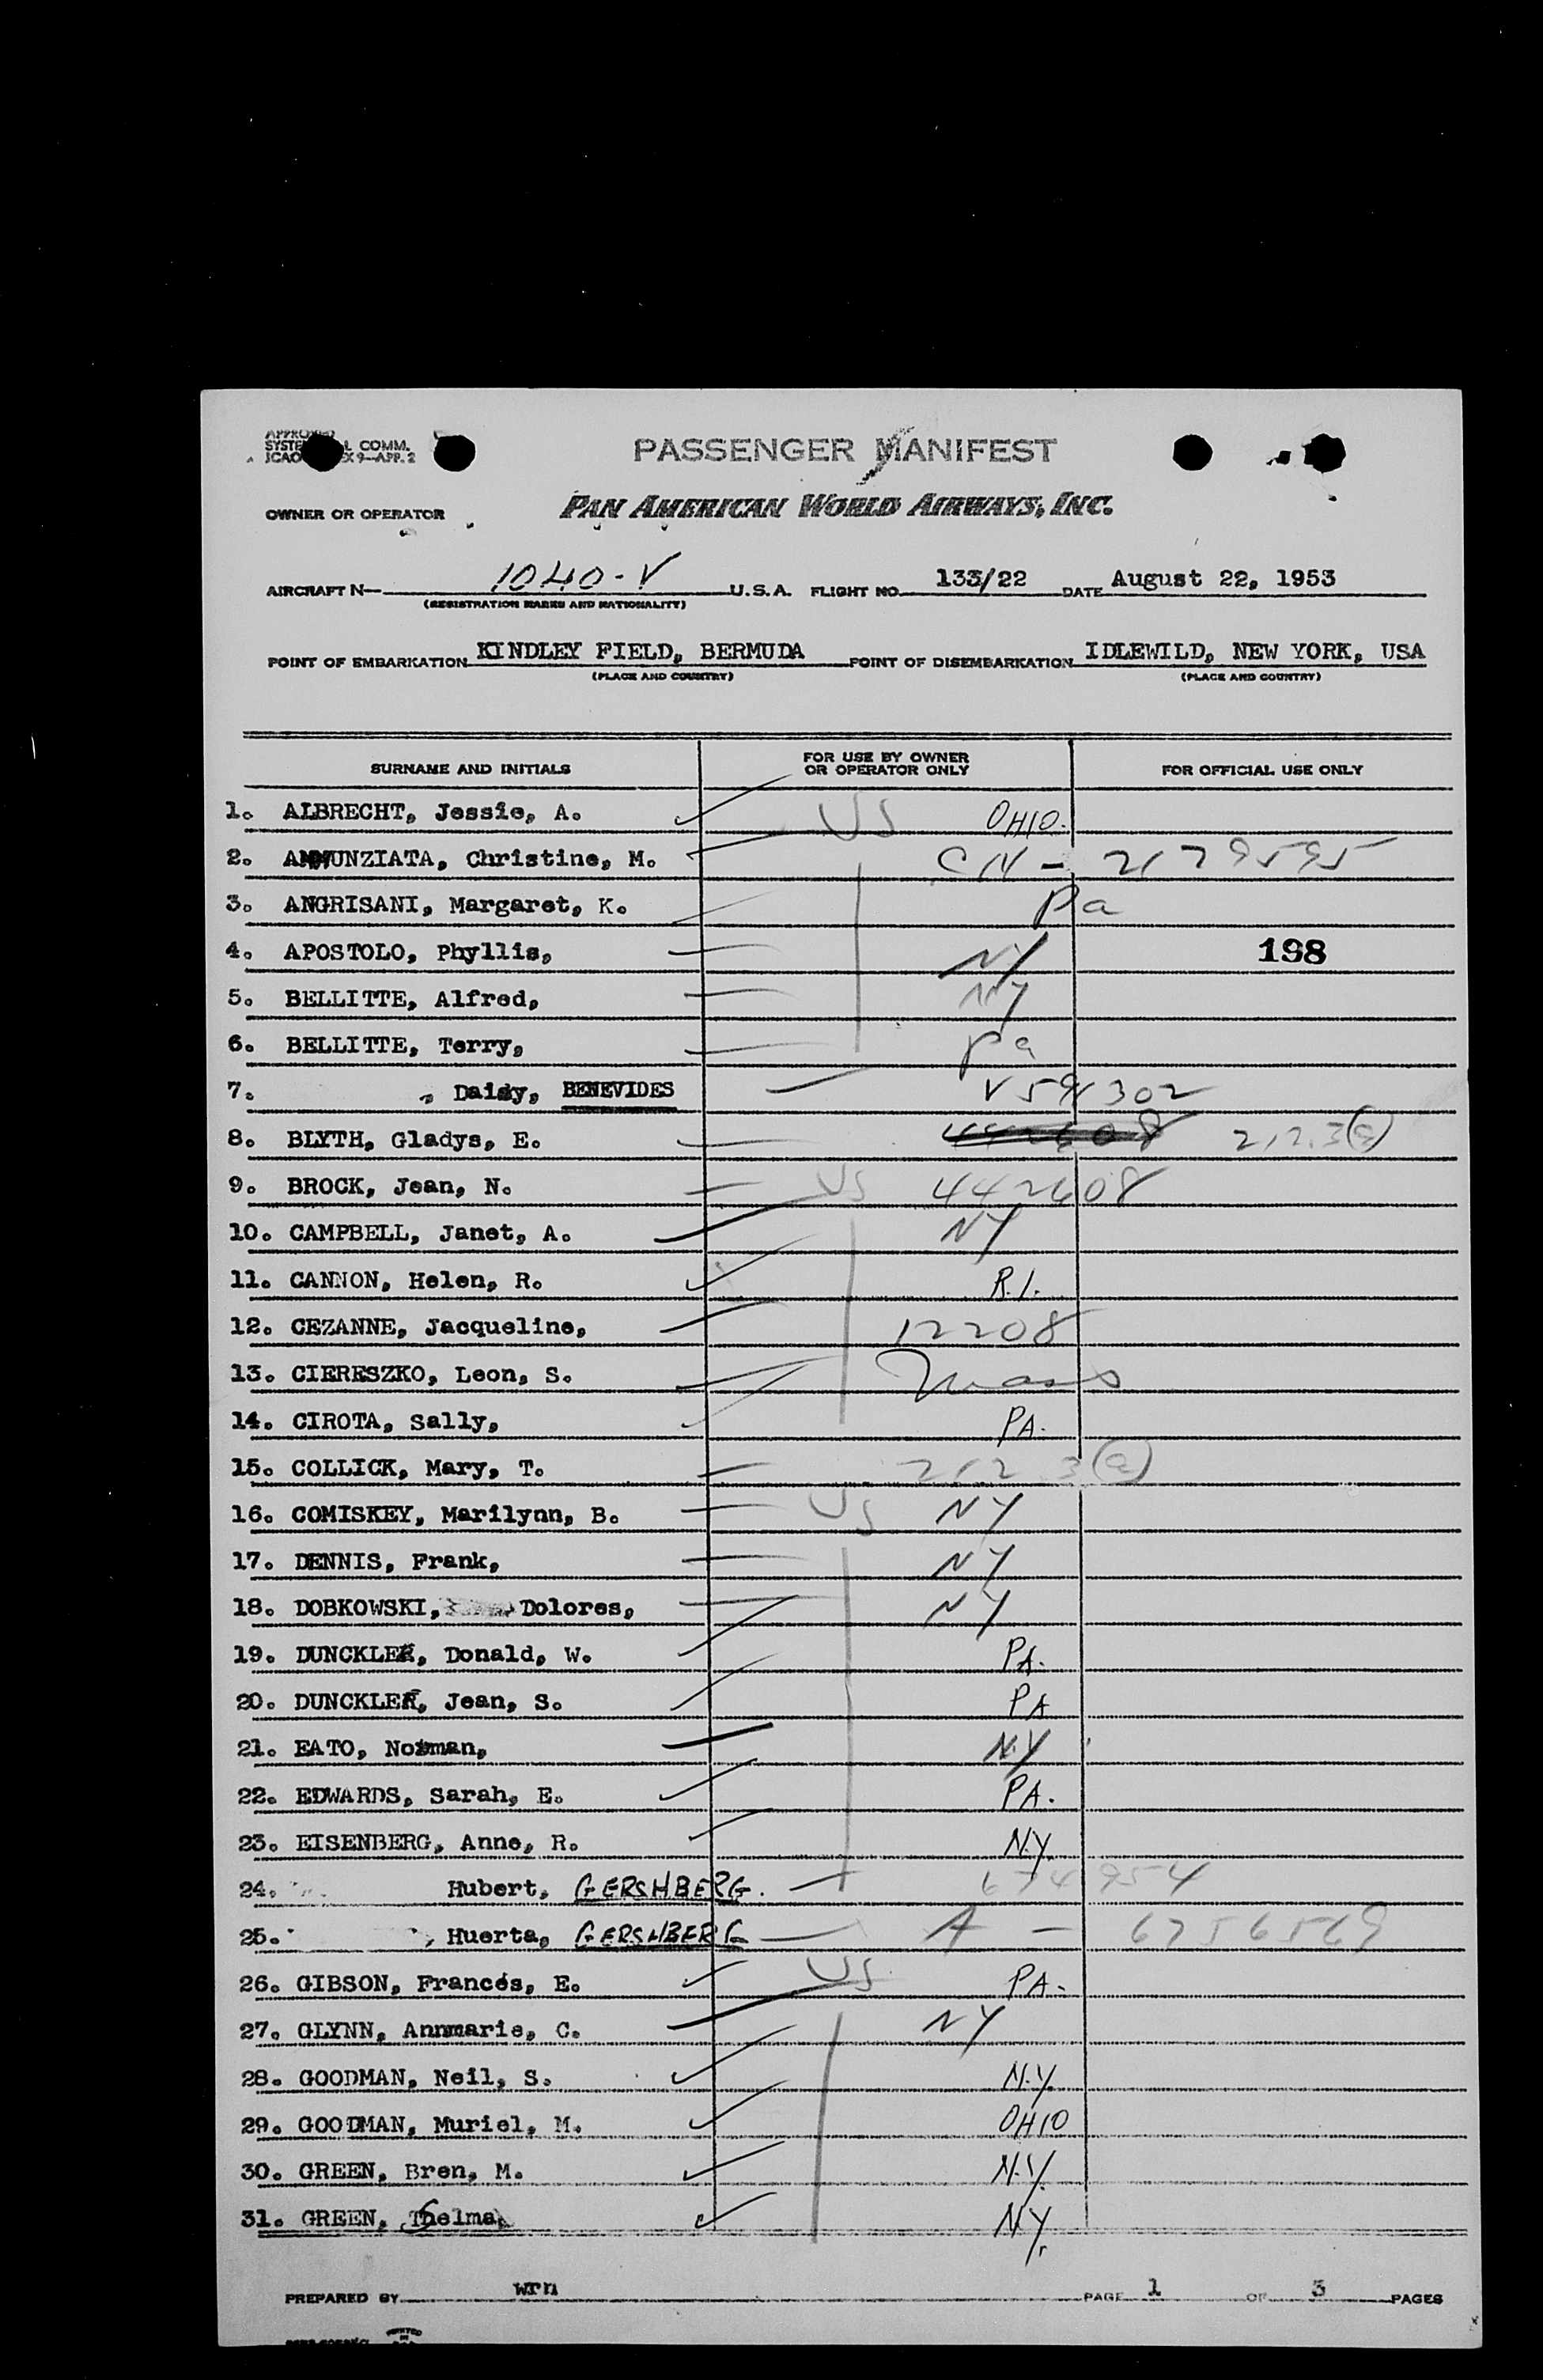 PASSENGER MANIFEST
COMM.
9—APP. 2
OWNER OR OPERATOR PAN AMERICAN WORLD AIRWAYS, INC.
AIRCRAFT N— 1040-V U.S.A. FLIGHT NO. 133/22 DATE August 22, 1953
(REGISTRATION MARKS AND NATIONALITY)
POINT OF EMBARKATION KINDLEY FIELD, BERMUDA POINT OF DISEMBARKATION IDLEWILD, NEW YORK, USA
(PLACE AND COUNTRY) (PLACE AND COUNTRY)
SURNAME AND INITIALS FOR USE BY OWNER OR OPERATOR ONLY FOR OFFICIAL USE ONLY
1. ALBRECHT, Jessie, A. US OHIO.
2. ANNUNZIATA, Christine, M. CN - 2179595
3. ANGRISANI, Margaret, K. Pa
4. APOSTOLO, Phyllis, NY 198
5. BELLITTE, Alfred, NY
6. BELLITTE, Terry, Pa
7. , Daisy, BENEVIDES V591302
8. BLYTH, Gladys, E. 442608 212.3(a)
9. BROCK, Jean, N. US 442608
10. CAMPBELL, Janet, A. NY
11. CANNON, Helen, R. R.I.
12. CEZANNE, Jacqueline, 12208
13. CIERESZKO, Leon, S. Mass
14. CIROTA, Sally, PA.
15. COLLICK, Mary, T. 212.3(a)
16. COMISKEY, Marilynn, B. US NY
17. DENNIS, Frank, NY
18. DOBKOWSKI, Dolores, NY
19. DUNCKLEE, Donald, W. PA.
20. DUNCKLEE, Jean, S. PA
21. EATO, Norman, N.Y
22. EDWARDS, Sarah, E. PA.
23. EISENBERG, Anne, R. N.Y.
24. Hubert, GERSHBERG. 674954
25. , Huerta, GERSHBERG A - 6756569
26. GIBSON, Frances, E. US PA.
27. GLYNN, Annmarie, C. NY
28. GOODMAN, Neil, S. N.Y.
29. GOODMAN, Muriel, M. OHIO
30. GREEN, Bren, M. N.Y.
31. GREEN, Selma, N.Y.
PREPARED BY wrn PAGE 1 OF 3 PAGES